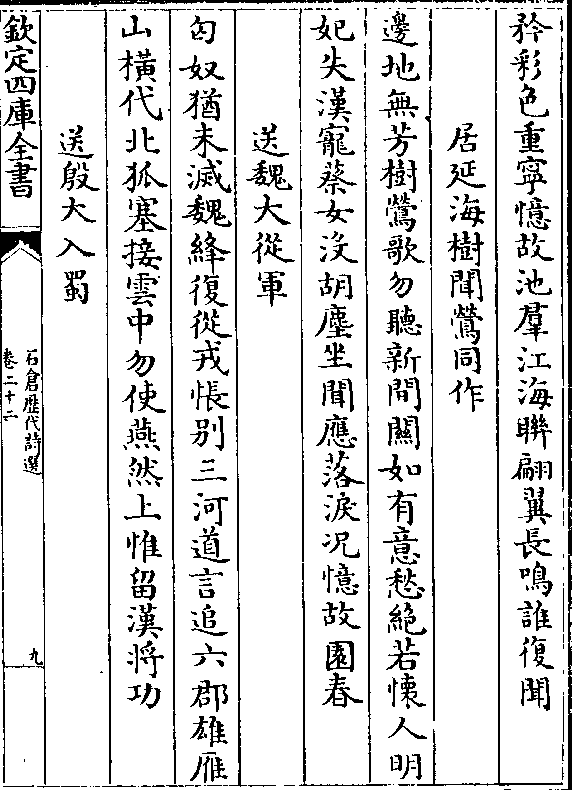 矜彩色重寧憶故池羣江海聯翩翼長鳴誰復聞
居延海樹聞鶯同作
邊地無芳樹鶯歌勿聽新間關如有意愁絕若懐人明
妃失漢寵蔡女沒胡塵坐聞應落淚況憶故園春
送魏大從軍
匈奴猶未滅魏絳復從戎悵别三河道言追六郡雄雁
山橫代北狐塞接雲中勿使燕然上惟留漢將功
送殷大入蜀
欽定四庫全書
石倉歷代詩選
卷二十二
九